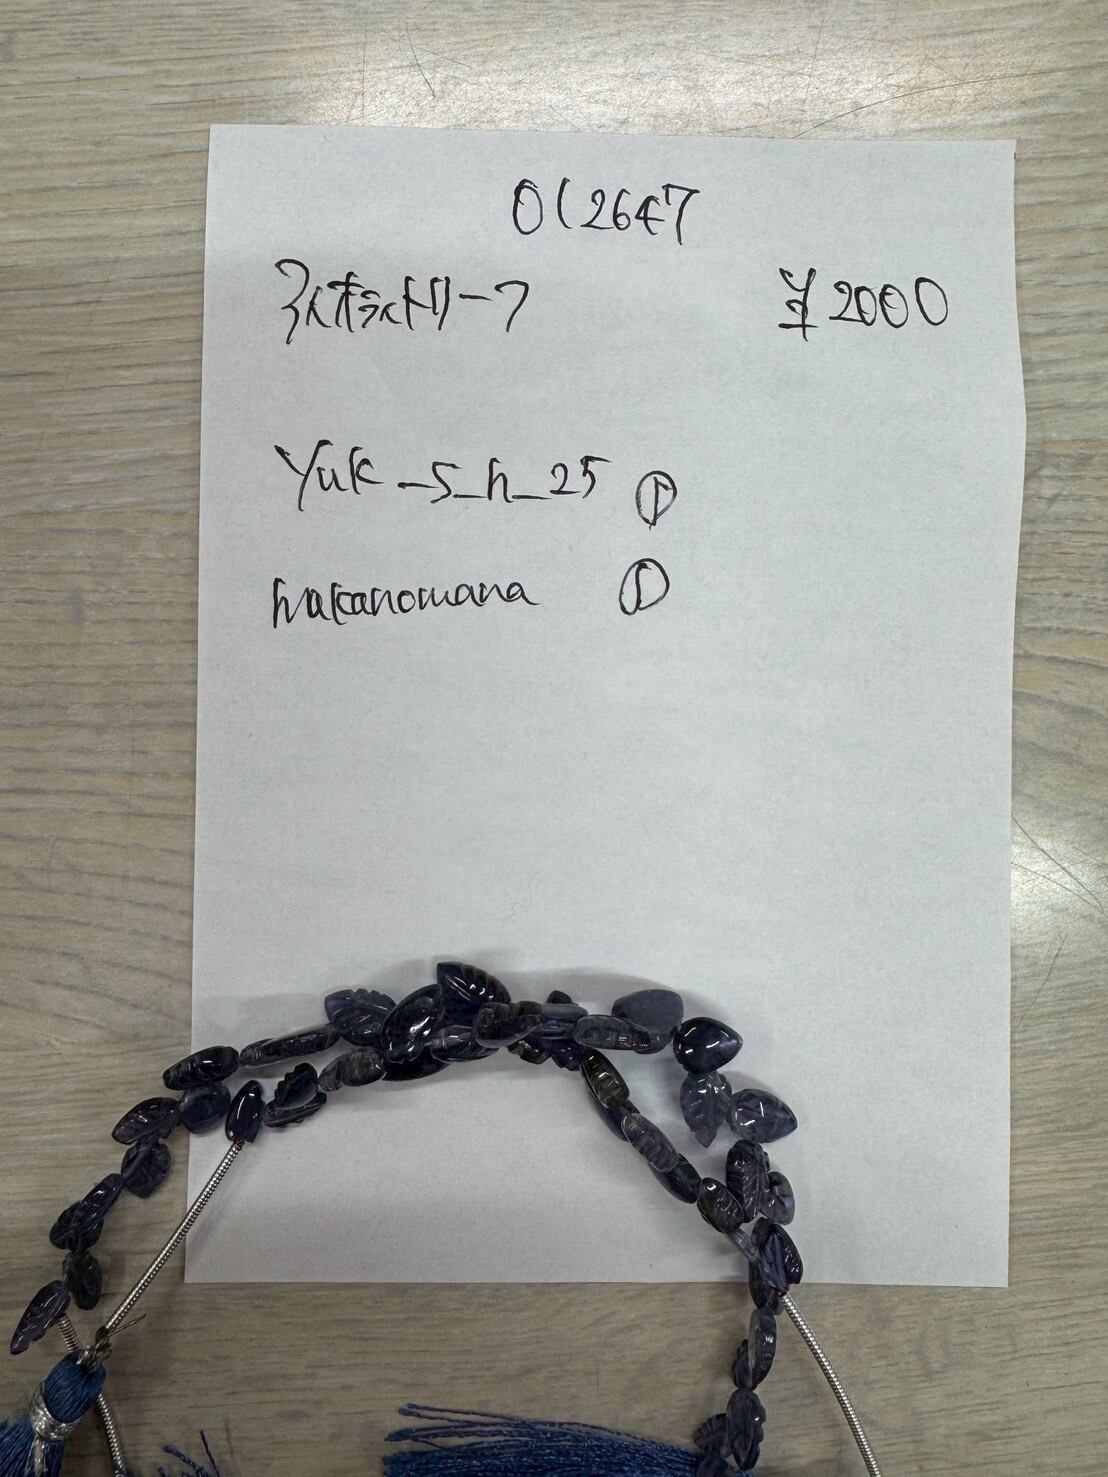 012647
アイオライトリーフ ¥2000
Yuk_s_h_25 ①
nakanomana ①